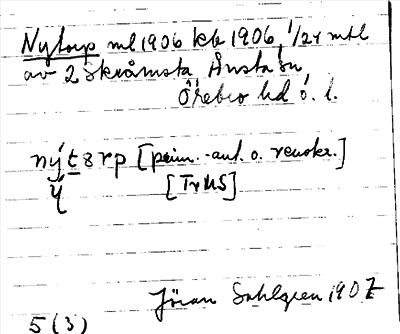 Nytorp ml 1906 kb 1906 1/24 mtl
av 2 Skråmsta, Ånsta sn
Örebro hd ö. l.
nýtərp [prim.-ant. o. renskr.]
ý [Tr MS]
Jöran Sahlgren 1907
5 (3)